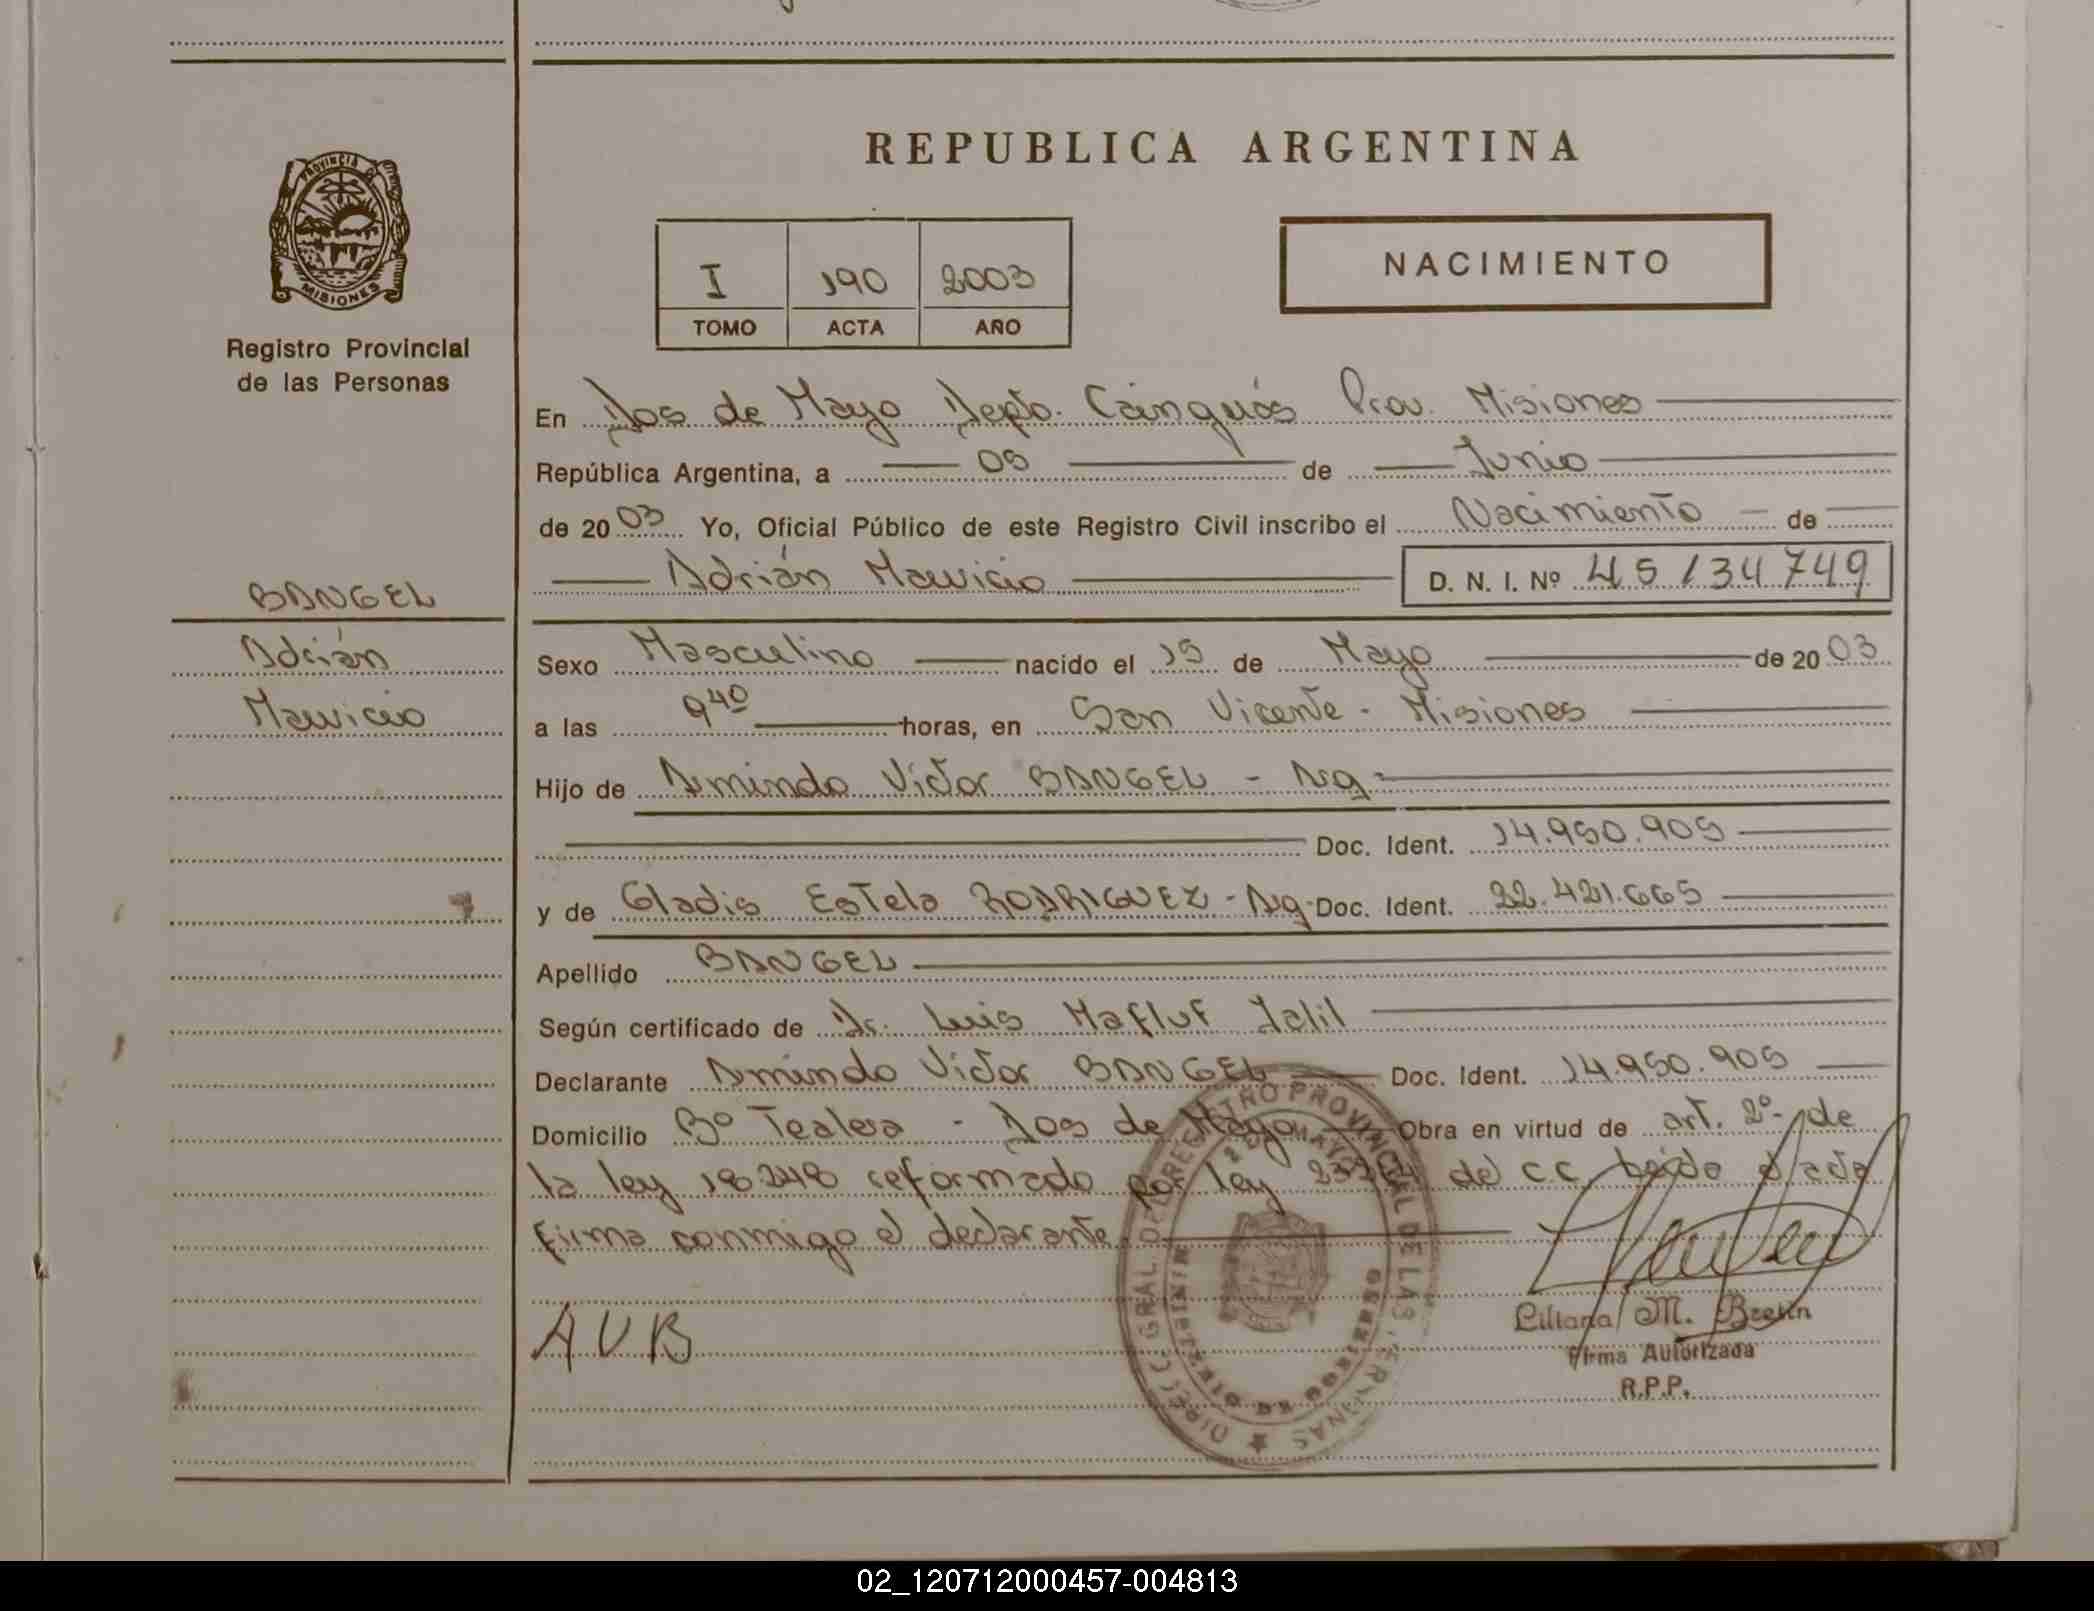 REPUBLICA ARGENTINA
PROVINCIA DE MISIONES
Registro Provincial
de las Personas
I 190 2003
TOMO ACTA AÑO
NACIMIENTO
En Dos de Mayo Depto. Cainguás Prov. Misiones
República Argentina, a 05 de Junio
de 2003 Yo, Oficial Público de este Registro Civil inscribo el Nacimiento de
Adrián Mauricio D. N. I. Nº 45134749
BANGEL
Adrián
Mauricio
Sexo Masculino nacido el 15 de Mayo de 2003
a las 9 40 horas, en San Vicente - Misiones
Hijo de Armindo Victor BANGEL - Arg -
Doc. Ident. 14.950.905
y de Gladis Estela RODRIGUEZ - Arg. Doc. Ident. 22.421.665
Apellido BANGEL
Según certificado de Dr. Luis Mafluf Jalil
Declarante Armindo Victor BANGEL Doc. Ident. 14.950.905
Domicilio Bº Tealera - Dos de Mayo Obra en virtud de art. 2º - de
la ley 18248 reformado por ley del C.C. Leída el acta
firma conmigo el declarante.
AVB
DIRECC GRAL. DEL REGISTRO PROVINCIAL DE LAS PERSONAS
Liliana M.
Firma Autorizada
R.P.P.
02_120712000457-004813